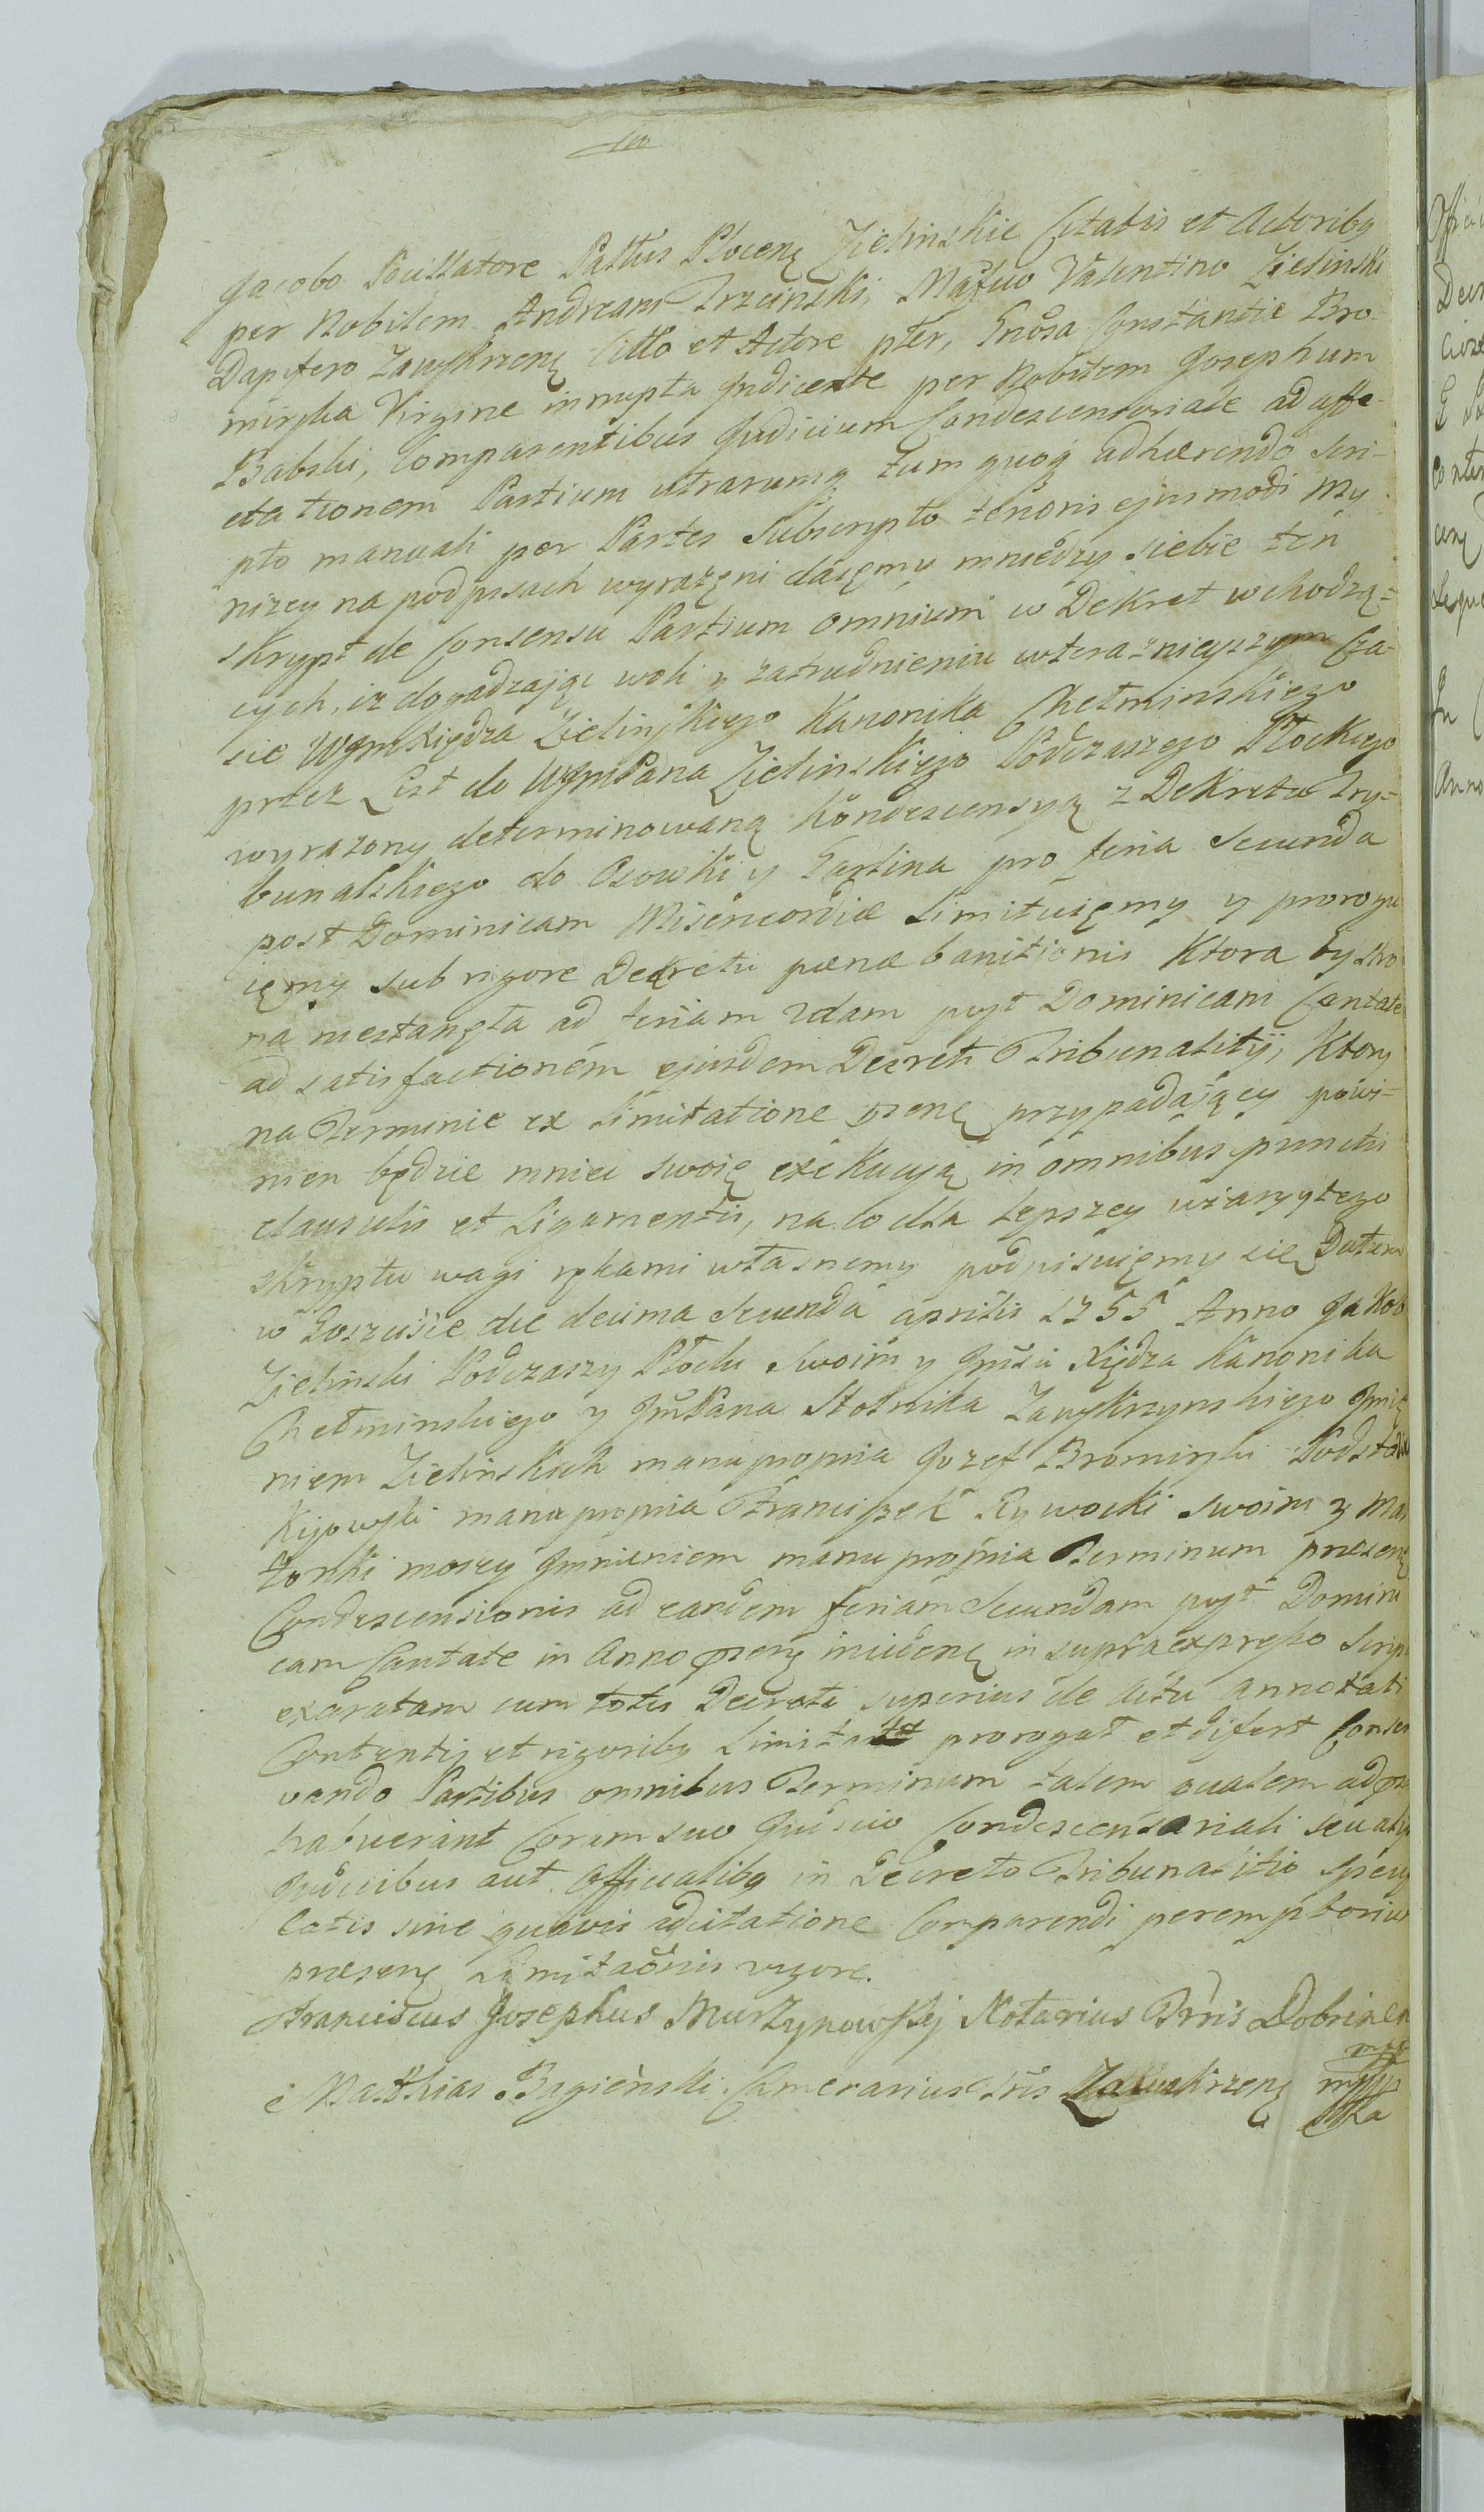 Jacobo Pocillatore Pallus Plocenę Zielinskie Citatis et Actoribq
per Nobilem Andream Trzcinski, Mağfico Valentino Zielinski
Dapifero Zawskrzenę Citto et Actore pter, Gnosa Constantie Bro-
mirska Virgine innupta Judicente per Nobilem Josephum
Babski, Comparentibus Judicium Condescensoriale ad affe-
ctationem Partium utrarumq tum quoq adhærendo Scri-
pto manuali per Partes Subscripto tenoris ejusmodi My
nizey na podpisach wyrażęni daięmy mniedzy siebie ten
skrypt de Consensu Partium omnium w Dekret wchodzą-
cych, iz dogadzaiąc woli y zatrudnieniu wteraznieyszym Cza-
sie Wgm Xiędza Zielinskiego Kanonika Chełminskiego
przez List do Wgm Pana Zielinskiego Podczaszego Płockiego
wyrazony determinowaną Kondescensyą z Dekretu Try-
bunalskiego do Osowki y Garlina pro feria Secunda
post Dominicam Misericordiæ Limituięmy y prorogu
ięmy sub rigore Decretu pænæ banitionis Ktora by stro
na niestanęła ad feriam 2dam post Dominicam Cantate
ad satisfactionem ejusdem Decreti Tribunalitij, Ktory
na Terminie ex Limitatione pzenę przypadaiący powi-
nien będzie mniec swoię exekucyą in omnibus punctis
clausulis et Ligamentis, na co dla lepszey wiary y tego
skryptu wagi rękami własnemy podpisuięmy się Datum
w Goszusie die decima Secunda aprilis 1755 Anno Jakob
Zielinski Podczaszy Płocki Swoim y Jmsci Xiędza Kanonika
Chełminskiego y Jm Pana Stolnika Zawskrzynskiego Jmię
niem Zielinskich manu propria Jozef Bromirski Podstoli
Kijowski manu propria Franciszek Rywocki Swoim y Mał
żonki moiey Jmnieniem manu propria Terminum præsenę
Condescensionis ad eandem feriam Secundam post Domini
cam Cantate in Anno pzenę incidenę in supraexpresso Scrip
exaratam cum totis Decreti superius de Actu annotati
Contentis et rigoribq Limitat prorogat et difert Conser
vando Partibus omnibus Terminum talem qualem ad pz
habuerint Coram suo Judicio Condescensoriali seu alys
Judicibus aut Officialibq in Decreto Tribunalitio speci
catis sine quavis adcitatione Comparendi peremptorium
præsenę Limitaõnis vigore.
Franciscus Josephus Murzynowskij Notarius Trris Dobrinen
mpp
Matthias Bagienski Camerarius Trris Zawskrzenę mpp